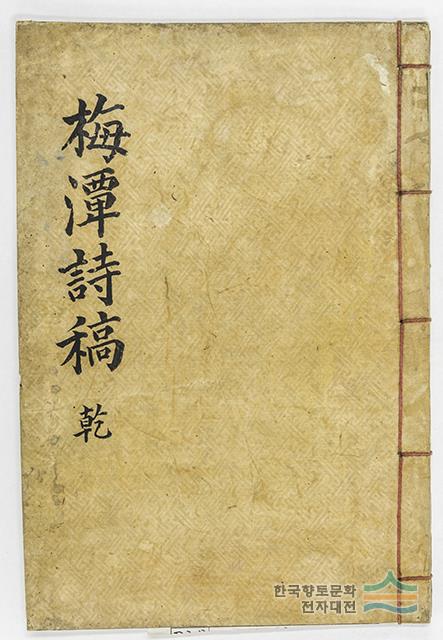 梅潭詩稿 乾
한국향토문화
전자대전